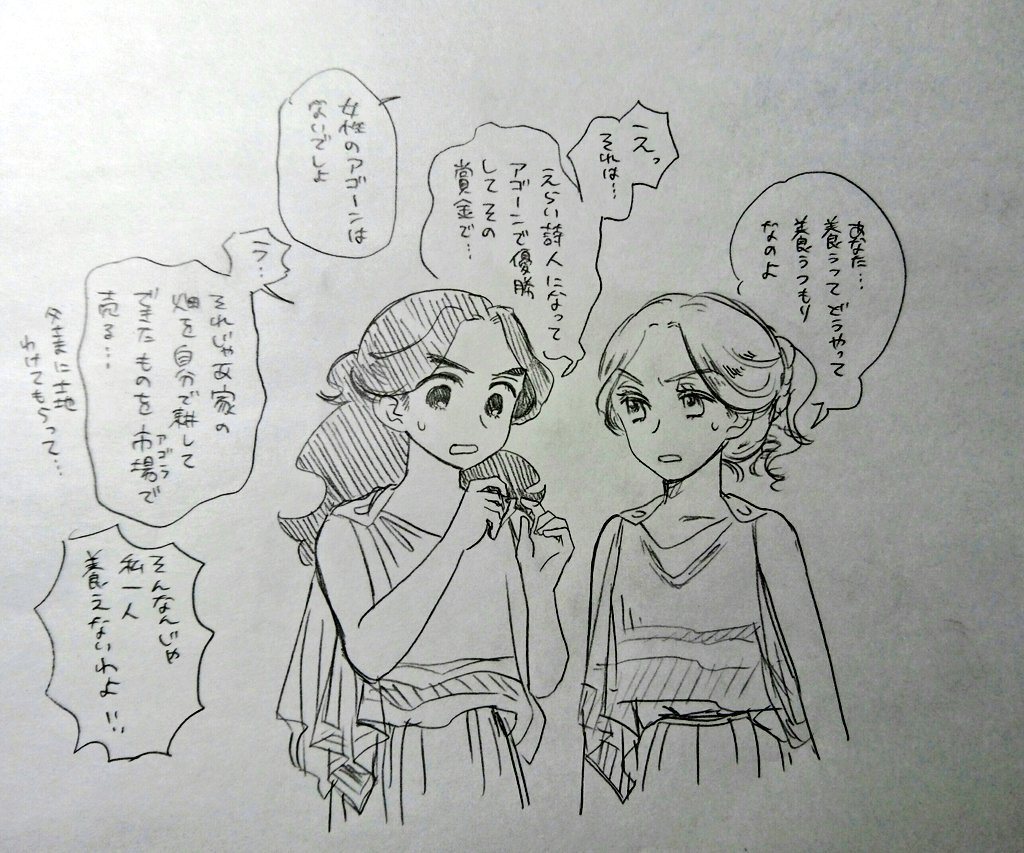 あなた…
養うってどうやって
養うつもり
なのよ
えっ
それは…
えらい詩人になって
アゴーンで優勝
してその
賞金で…
女性のアゴーンは
ないでしょ
う…
それじゃあ家の
畑を自分で耕して
できたものを市場で
アゴラ
売る…
父さまに土地
わけてもらって…
そんなんじゃ
私一人
養えないわよ!!